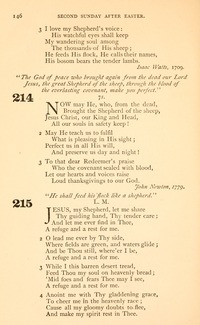 146 SECOND SUNDAY AFTER EASTER.
3 I love my Shepherd's voice:
His watchful eyes shall keep
My wandering soul among
The thousands of His sheep;
He feeds His flock, He calls their names,
His bosom bears the tender lambs.
Isaac Watts, 1709.
"The God of peace who brought again from the dead our Lord
Jesus, the great Shepherd of the sheep, through the blood of
the everlasting covenant, make you perfect."
214 7s.
NOW may He, who, from the dead,
Brought the Shepherd of the sheep,
Jesus Christ, our King and Head,
All our souls in safety keep!
2 May He teach us to fulfil
What is pleasing in His sight;
Perfect us in all His will,
And preserve us day and night!
3 To that dear Redeemer's praise
Who the covenant sealed with blood,
Let our hearts and voices raise
Loud thanksgivings to our God.
John Newton, 1779.
"He shall feed his flock like a shepherd."
215 L. M.
JESUS, my Shepherd, let me share
Thy guiding hand, Thy tender care;
And let me ever find in Thee,
A refuge and a rest for me.
2 O lead me ever by Thy side,
Where fields are green, and waters glide;
And be Thou still, where'er I be,
A refuge and a rest for me.
3 While I this barren desert tread,
Feed Thou my soul on heavenly bread;
'Mid foes and fears Thou may I see,
A refuge and a rest for me.
4 Anoint me with Thy gladdening grace,
To cheer me in the heavenly race;
Cause all my gloomy doubts to flee,
And make my spirit rest in Thee.